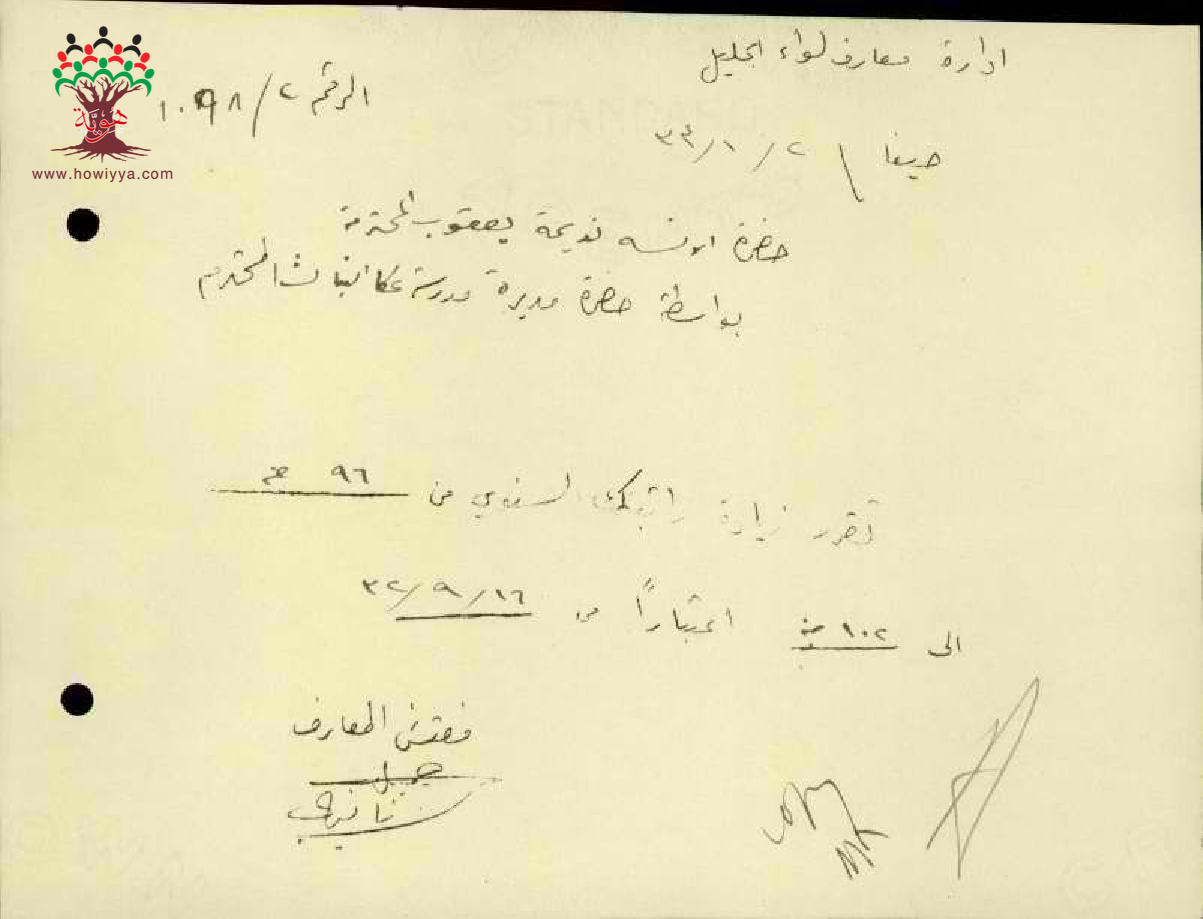 هويّة
www.howiyya.com
ادارة معارف لواء الجليل
الرقم ٢/١٠٩٨
حيفا
حضرة الانسه نديمة يعقوب المحترمة
بواسطة حضرة مديرة مدرسة عكا البنات المحترم
تقرر زيادة راتبك السنوي من ٩٦
الى ١٠٢ اعتباراً من ١٦/٩/٣٢
مفتش المعارف
جميل